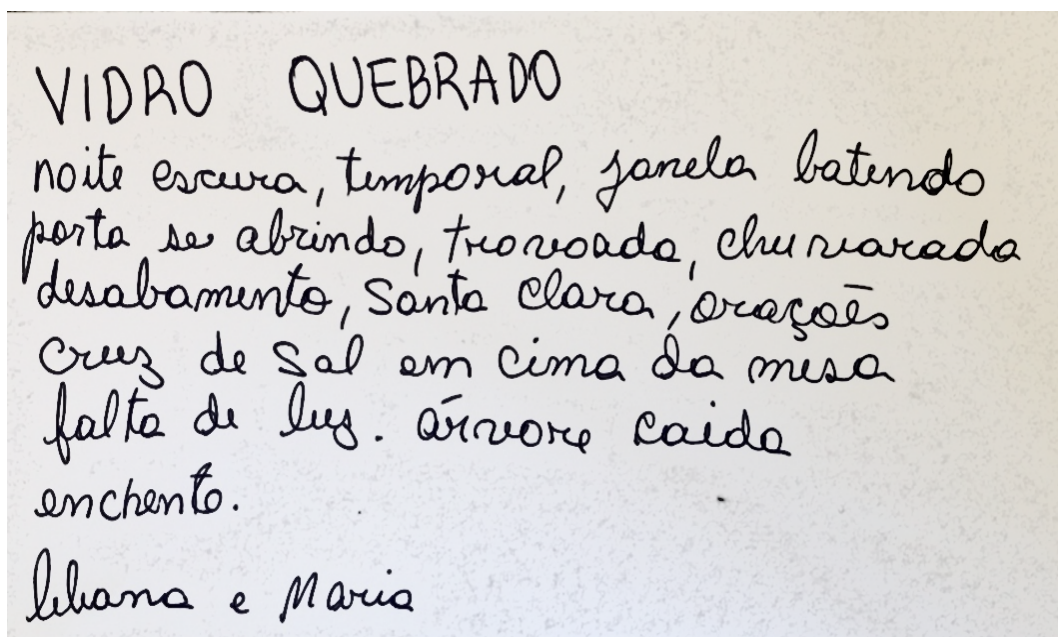 VIDRO QUEBRADO
noite escura, temporal, janela batendo
porta se abrindo, trovoada, chuvarada
desabamento, Santa Clara, orações
cruz de sal em cima da mesa
falta de luz. árvore caida
enchente.
e Maria